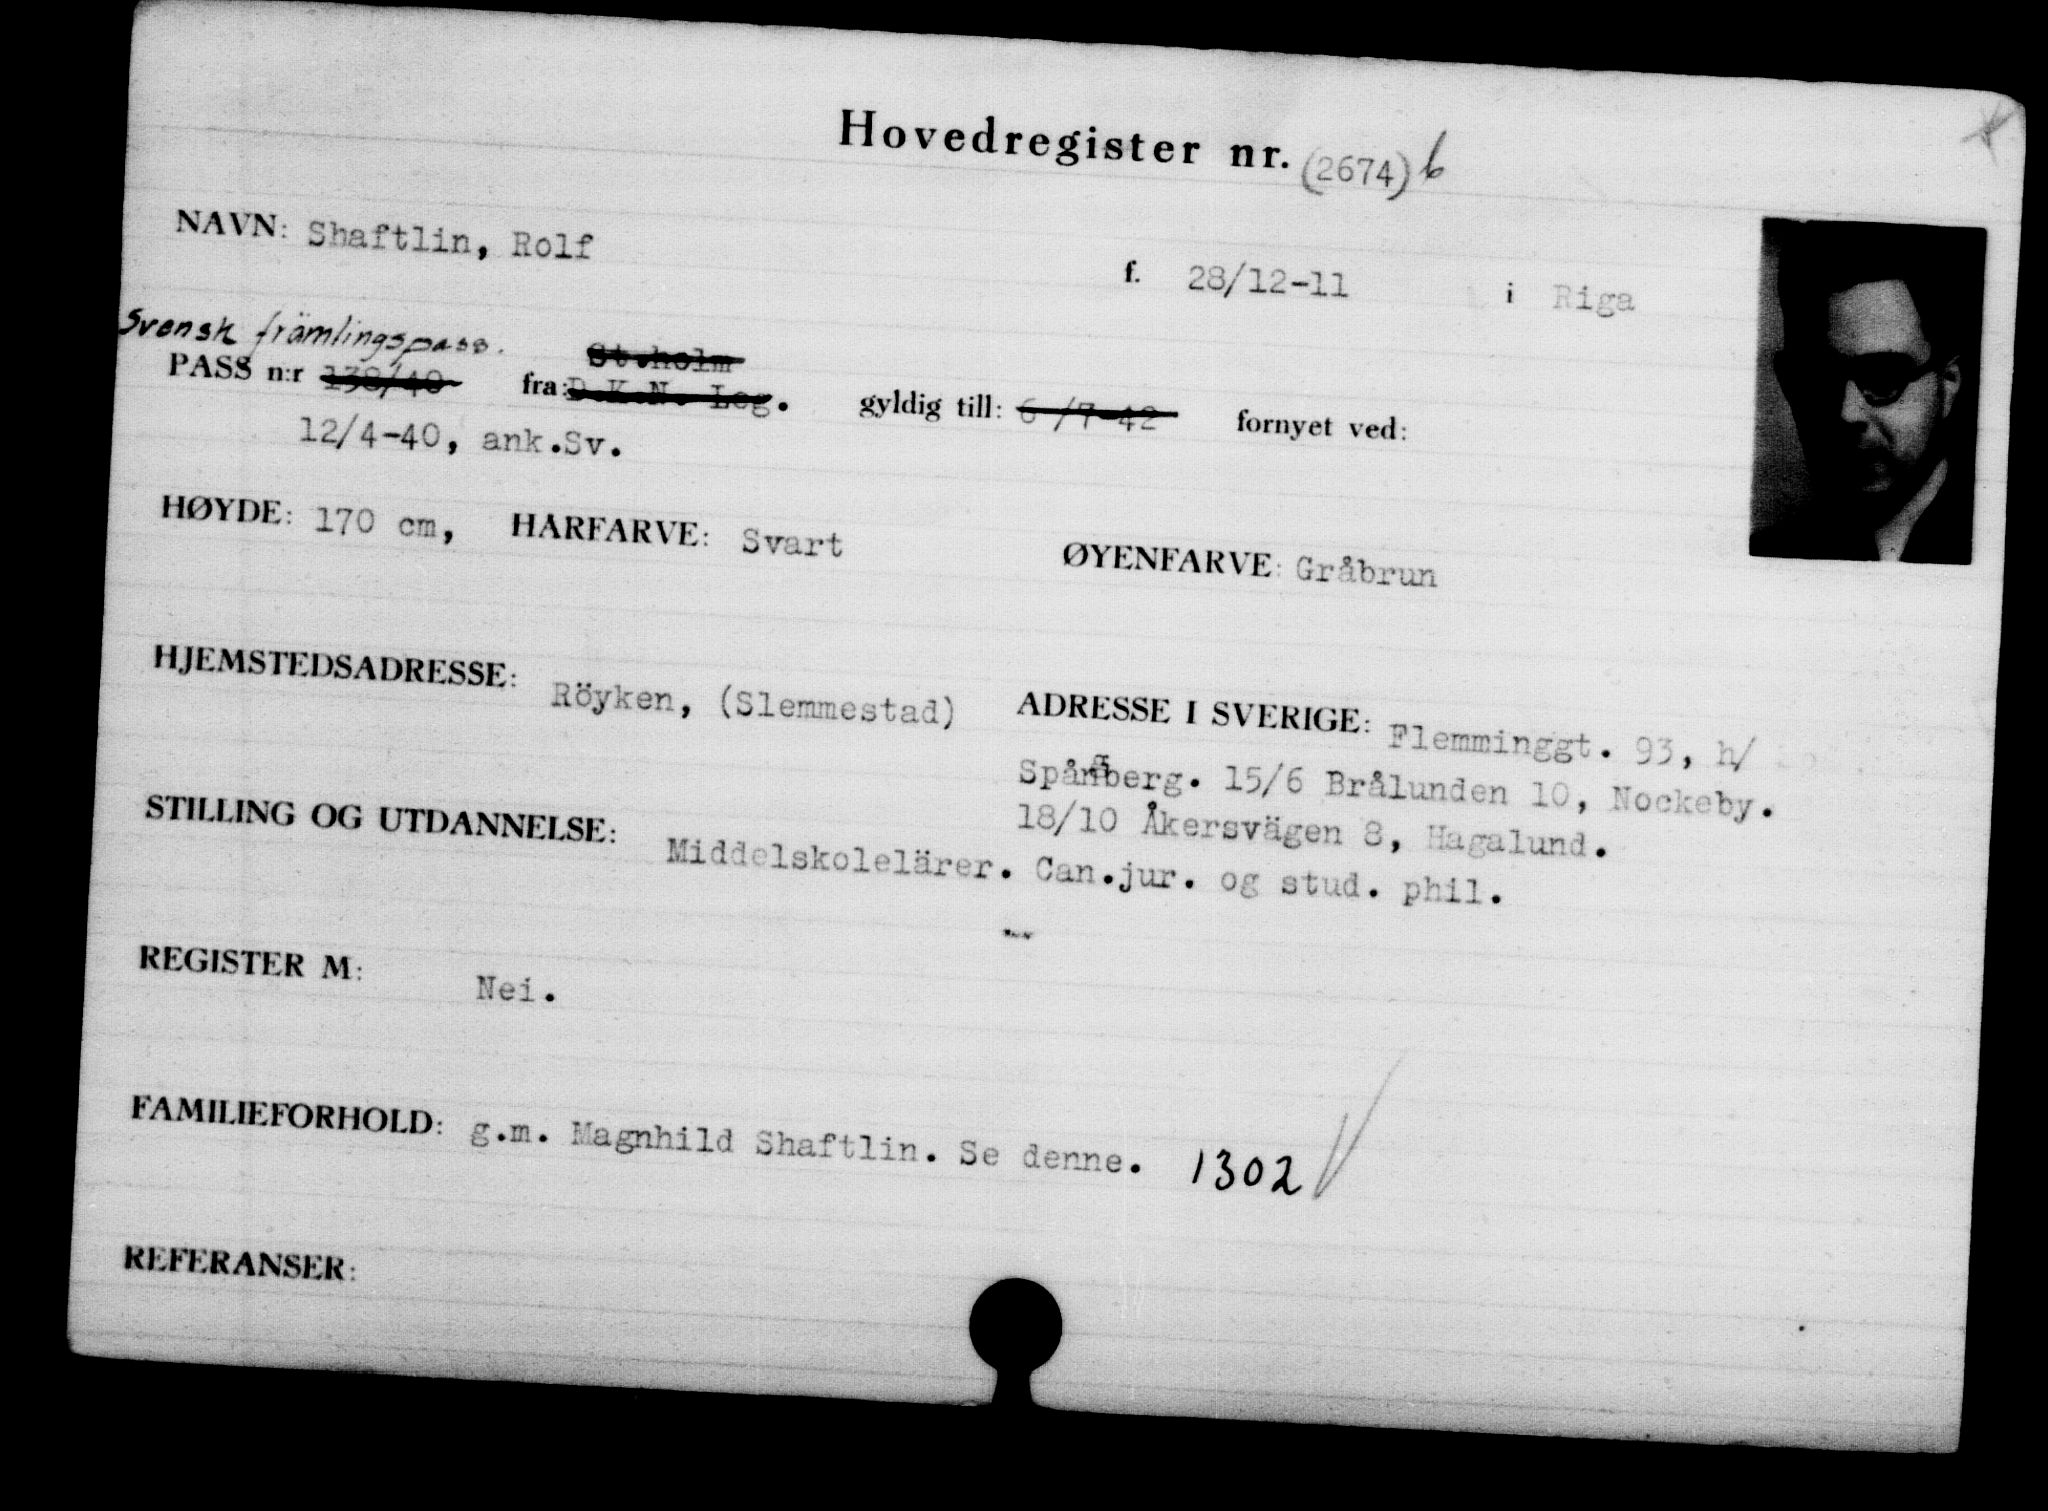 Hovedregister nr. (2674) b
NAVN: Shaftlin, Rolf f. 28/12-11 i Riga
Svensk främlingspass.
St.holm
PASS n:r 138/40 fra: D.K.N. Leg. gyldig till: 6 /7-42 fornyet ved:
12/4-40, ank.Sv.
HØYDE: 170 cm, HARFARVE: Svart ØYENFARVE: Gråbrun
HJEMSTEDSADRESSE: Röyken, (Slemmestad) ADRESSE I SVERIGE: Flemminggt. 93, h/
Spångberg. 15/6 Brålunden 10, Nockeby.
18/10 Åkersvägen 8, Hagalund.
STILLING OG UTDANNELSE: Middelskolelärer. Can.jur. og stud. phil.
REGISTER M: Nei.
FAMILIEFORHOLD: g.m. Magnhild Shaftlin. Se denne. 1302
REFERANSER: